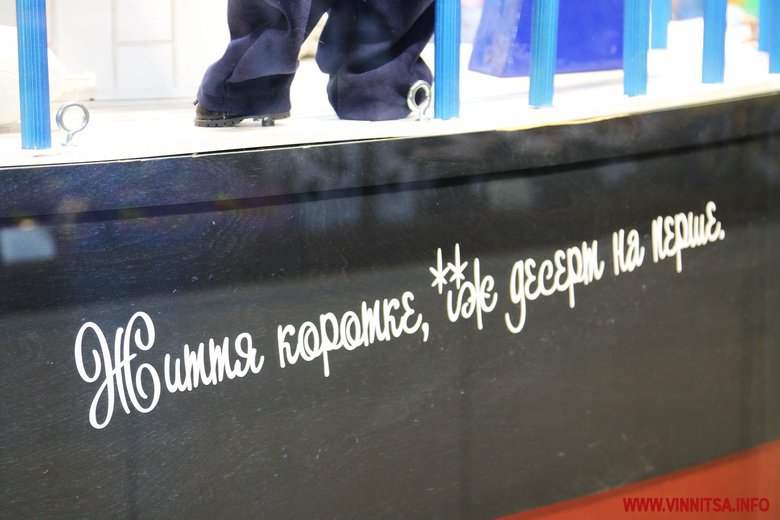 Життя коротке, їж десерт на перше.
WWW.VINNITSA.INFO